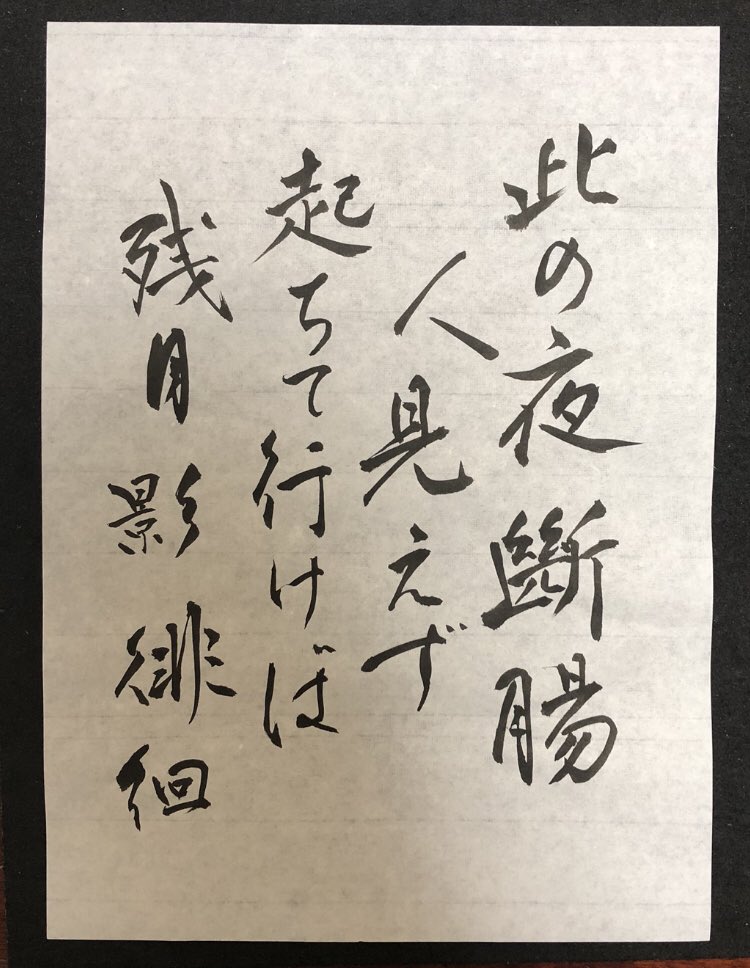 此の夜斷腸
人見えず
起ちて行けば
残月影徘徊